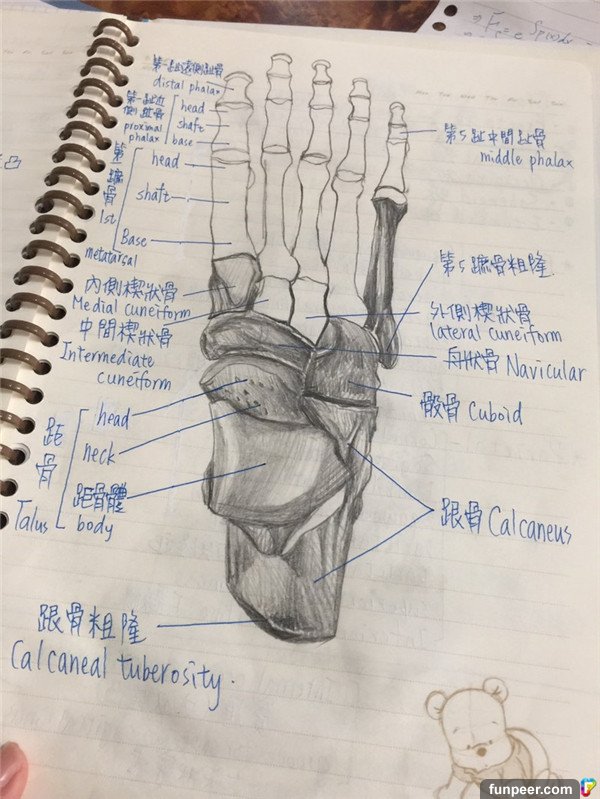 Free
第一趾遠側趾骨
distal phalax
第一趾近
側趾骨
proximal
phalax
head
shaft
base
第一
蹠
骨
1st
metatarsal
head
shaft
Base
內側楔狀骨
Medial cuneiform
中間楔狀骨
Intermediate
cuneiform
距
骨
Talus
head
neck
距骨體
body
跟骨粗隆
Calcaneal tuberosity.
第5趾中間趾骨
middle phalax
第5蹠骨粗隆.
外側楔狀骨
lateral cuneiform
舟狀骨 Navicular
骰骨 Cuboid
跟骨 Calcaneus
funpeer.com